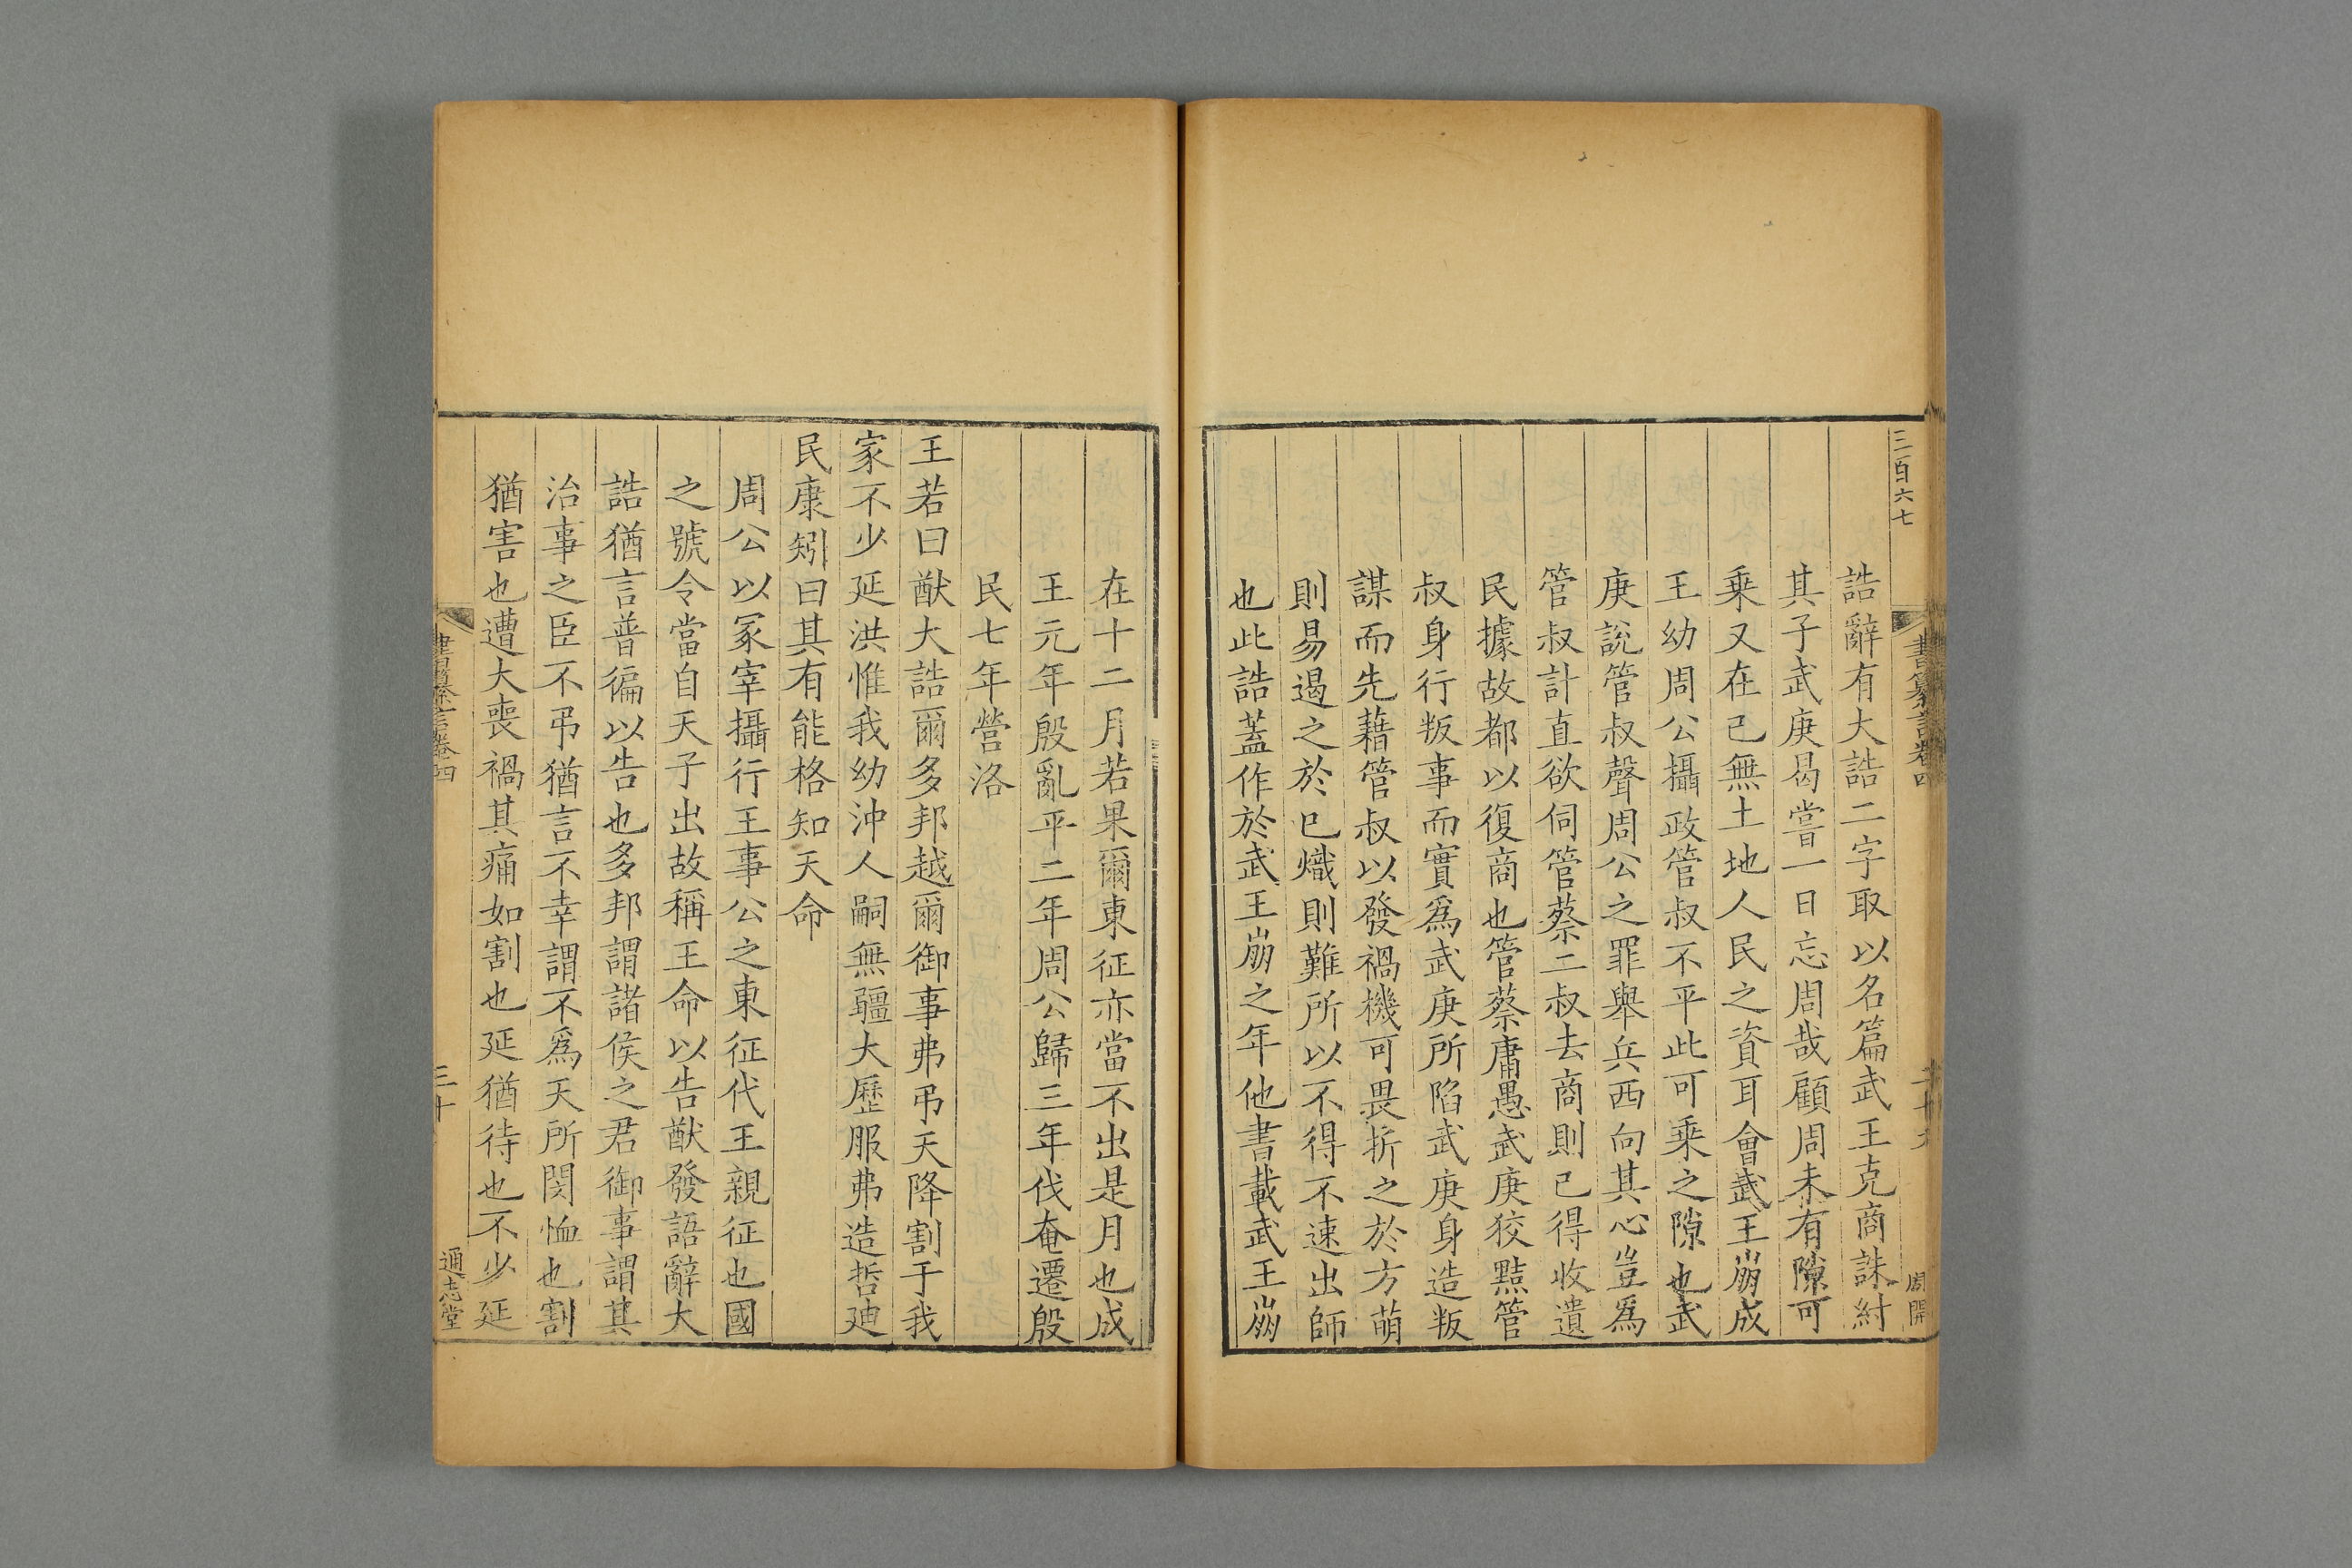 三百六七
書纂言卷四
周開
誥辭有大誥二字取以名篇武王克商誅紂
其子武庚曷嘗一日忘周哉顧周未有隙可
乗又在已無土地人民之資耳會武王崩成
王幼周公攝政管叔不平此可乗之隙也武
庚說管叔聲周公之罪舉兵西向其心豈爲
管叔計直欲伺管蔡二叔去商則已得收遺
民據故都以復商也管蔡庸愚武庚狡黠管
叔身行叛事而實爲武庚所陷武庚身造叛
謀而先藉管叔以發禍機可畏折之於方萌
則易遏之於已熾則難所以不得不速出師
也此誥蓋作於武王崩之年他書載武王崩
在十二月若果爾東征亦當不出是月也成
王元年殷亂平二年周公歸三年伐奄遷殷
民七年營洛
王若曰猷大誥爾多邦越爾御事弗弔天降割于我
家不少延洪惟我幼沖人嗣無疆大歷服弗造哲迪
民康矧曰其有能格知天命
周公以冢宰攝行王事公之東征代王親征也國
之號令當自天子出故稱王命以告猷發語辭大
誥猶言普徧以告也多邦謂諸侯之君御事謂其
治事之臣不弔猶言不幸謂不爲天所閔恤也割
猶害也遭大喪禍其痛如割也延猶待也不少延
書纂言卷四
三十
通志堂